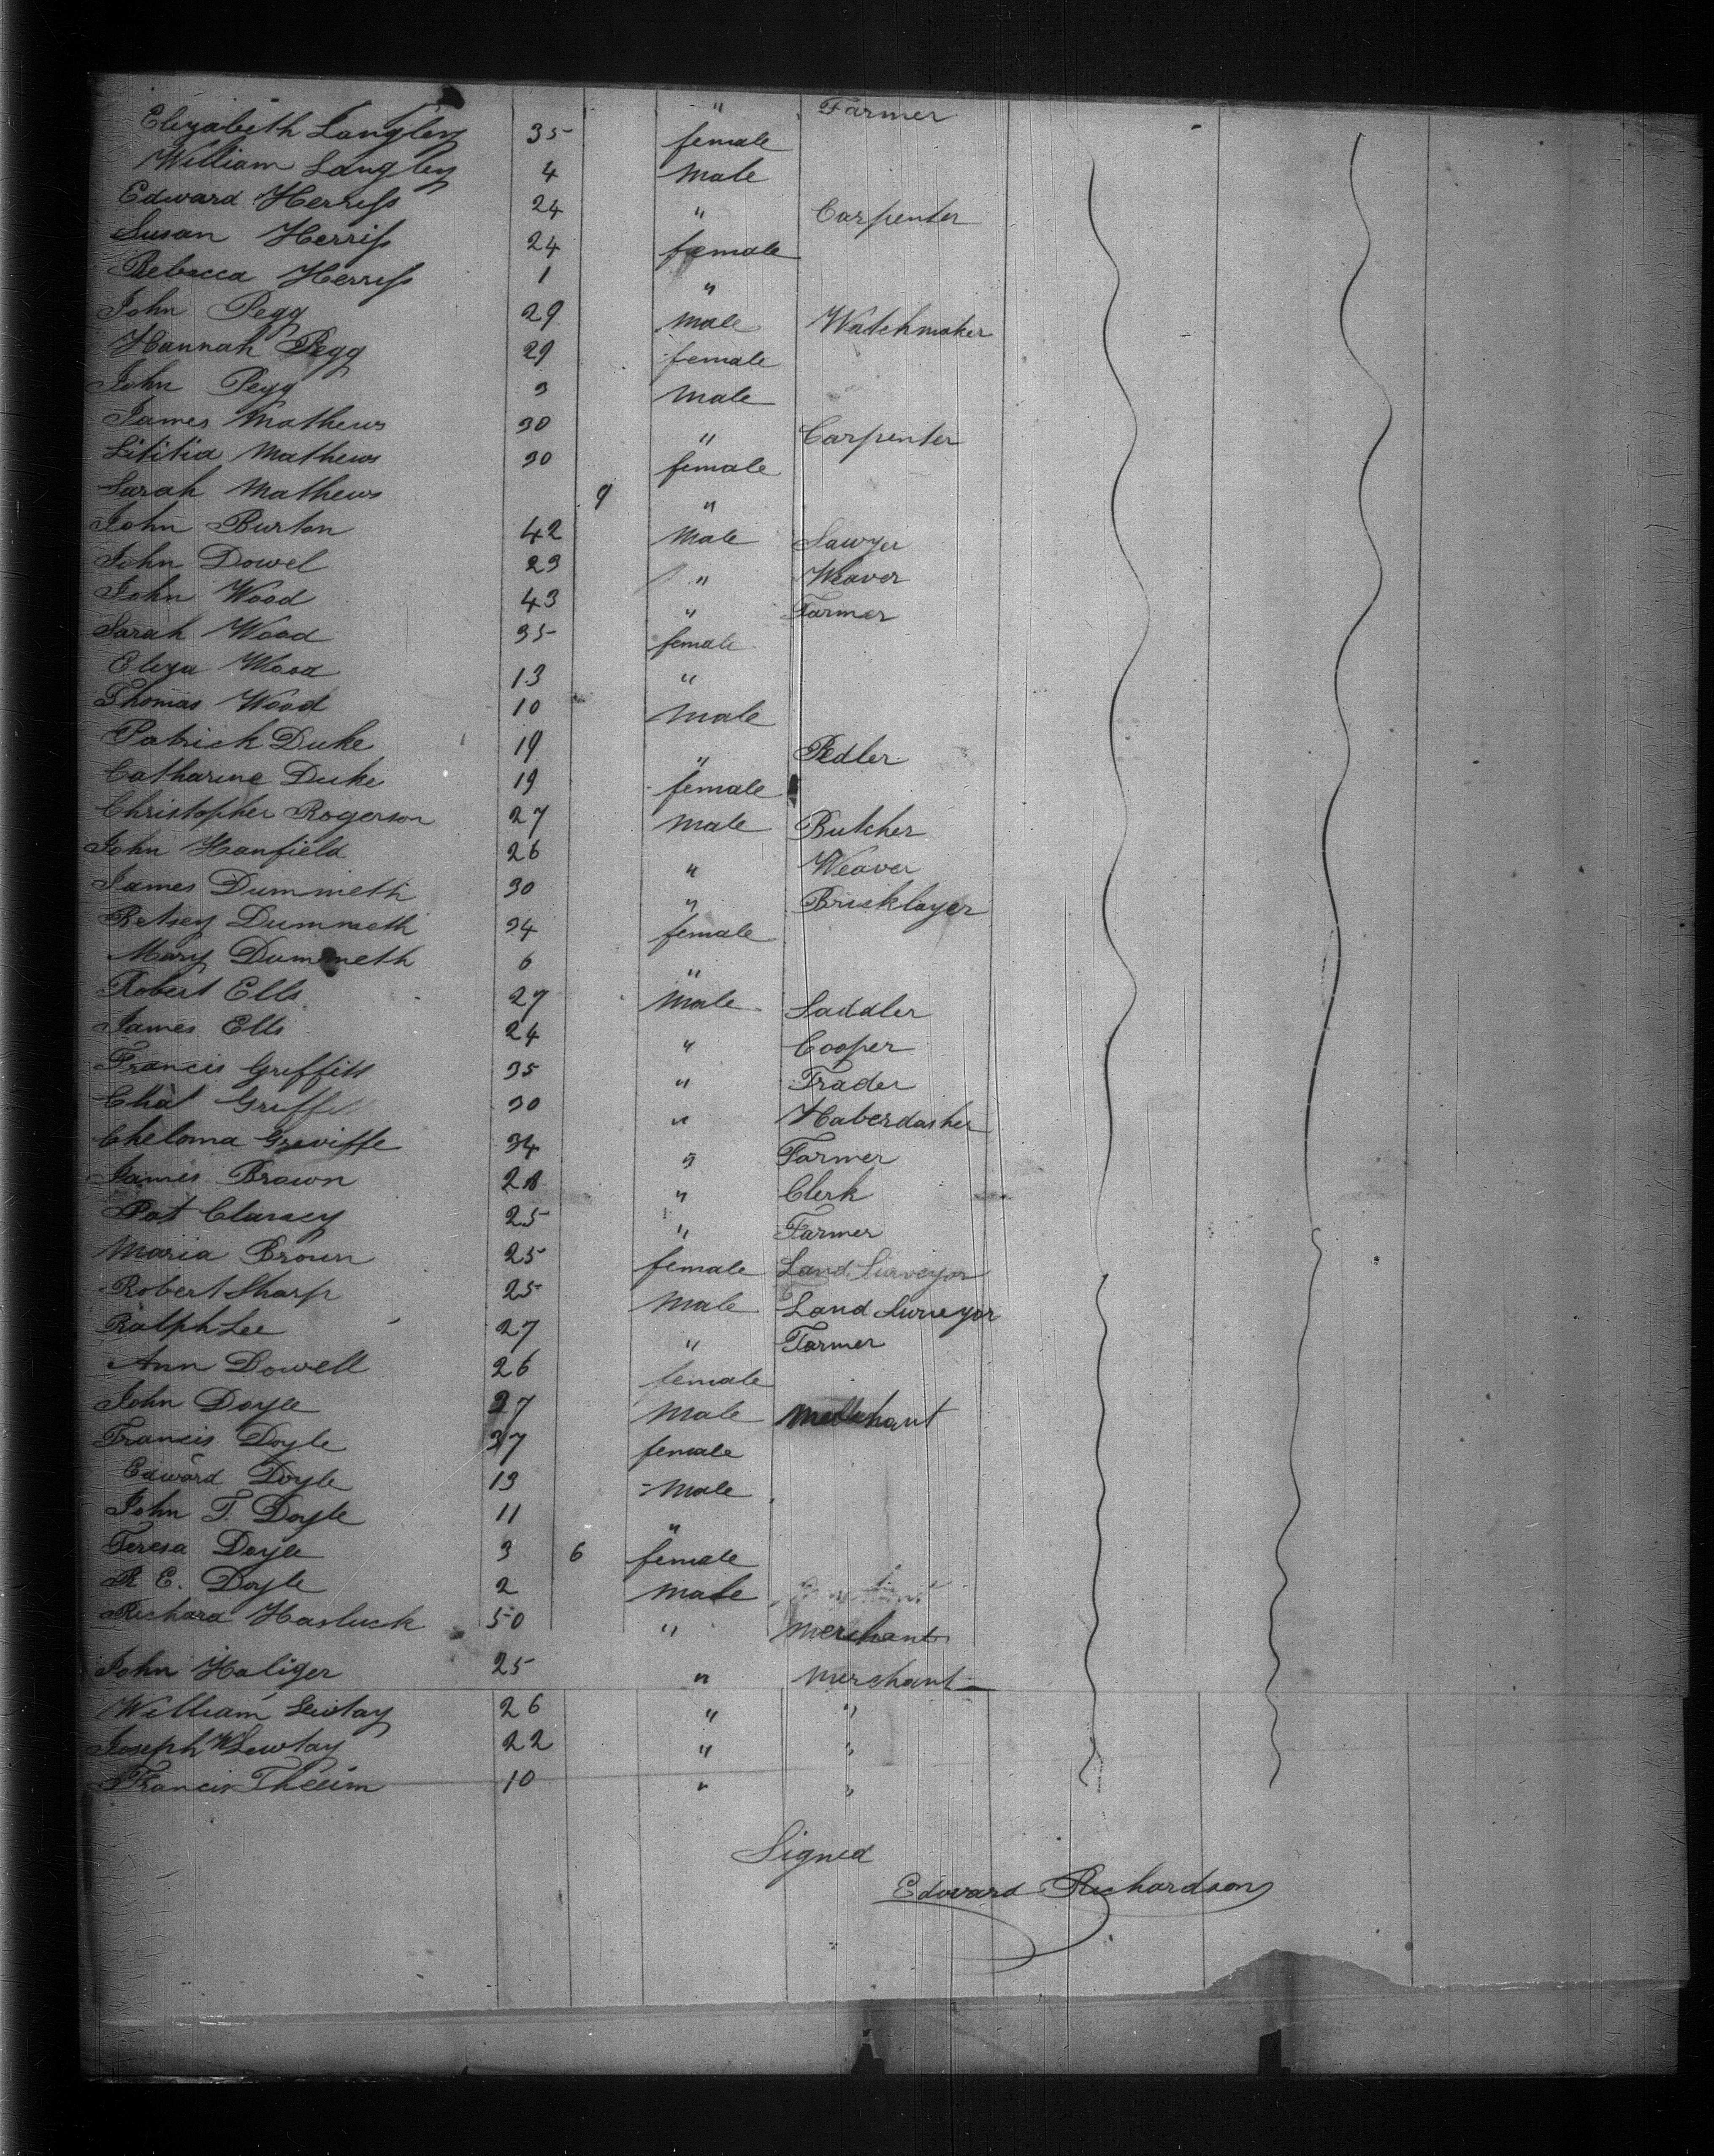 " Farmer
Elizabeth Langley 35 female
William Langley 4 Male
Edward Herriss 24 " Carpenter
Susan Herriss 24 female
Rebecca Herriss 1 "
John Pegg 29 Male Watchmaker
Hannah Pegg 29 female
John Pegg 3 Male
James Mathews 30 " Carpenter
Lititia Mathews 30 female
Sarah Mathews 9 "
John Burton 42 Male Sawyer
John Dowel 23 " Weaver
John Wood 43 " Farmer
Sarah Wood 35 female
Eliza Wood 13 "
Thomas Wood 10 Male
Patrick Duke 19 " Pedler
Catharine Duke 19 female
Christopher Rogerson 27 Male Butcher
John Hanfield 26 " Weaver
James Dummeth 30 " Bricklayer
Betsey Dummeth 34 female
Mary Dummeth 6 "
Robert Ells 27 Male Saddler
James Ells 24 " Cooper
Francis Griffitt 35 " Trader
Chat 30 " Haberdasher
Cheloma Greviffe 34 " Farmer
James Brown 28 " Clerk
Pat Clancey 25 " Farmer
Maria Brown 25 female Land Surveyor
Robert Sharp 25 Male Land Surveyor
Ralph Lee 27 " Farmer
Ann Dowell 26 female
John Doyle 37 Male Merchant
Francis Doyle 37 female
Edward Doyle 13 Male
John T. Doyle 11 "
Teresa Doyle 3 6 female
R E. Doyle 2 Male
Richard Hasluck 50 " Merchant
John Haliger 25 " Merchant
William Lewtay 26 " "
Joseph W Lewtay 22 " "
Francis Theum 10 " "
Signed
Edward Richardson